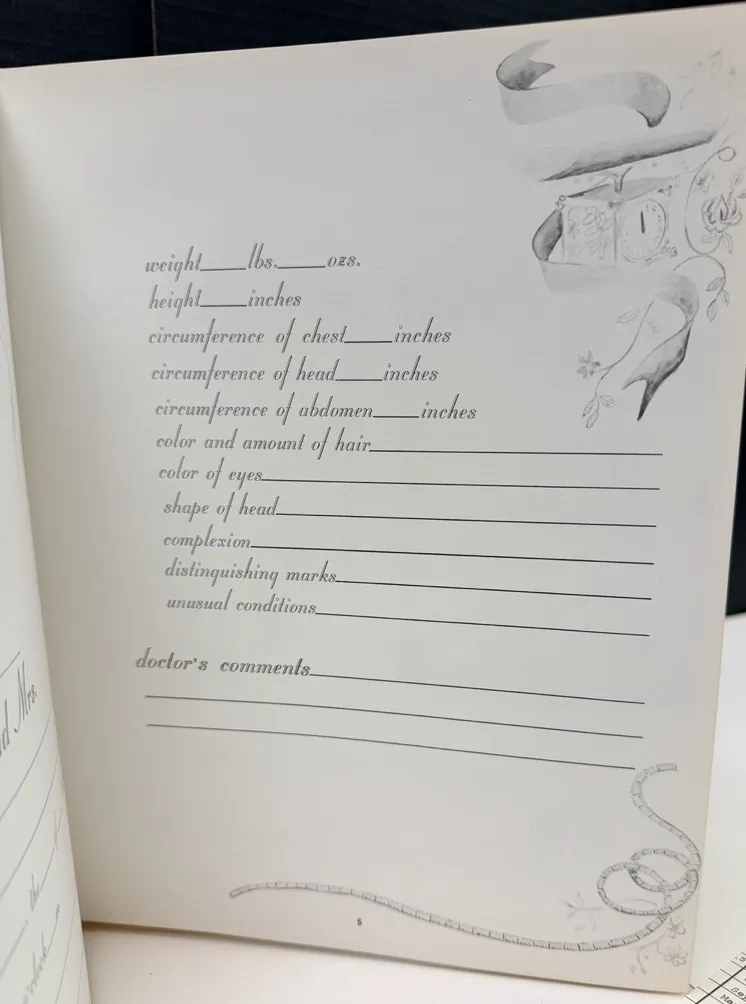 weight____lbs.____ozs.
height____inches
circumference of chest____inches
circumference of head____inches
circumference of abdomen____inches
color and amount of hair
color of eyes
shape of head
complexion
distinguishing marks
unusual conditions
doctor's comments
5
Mrs.
the